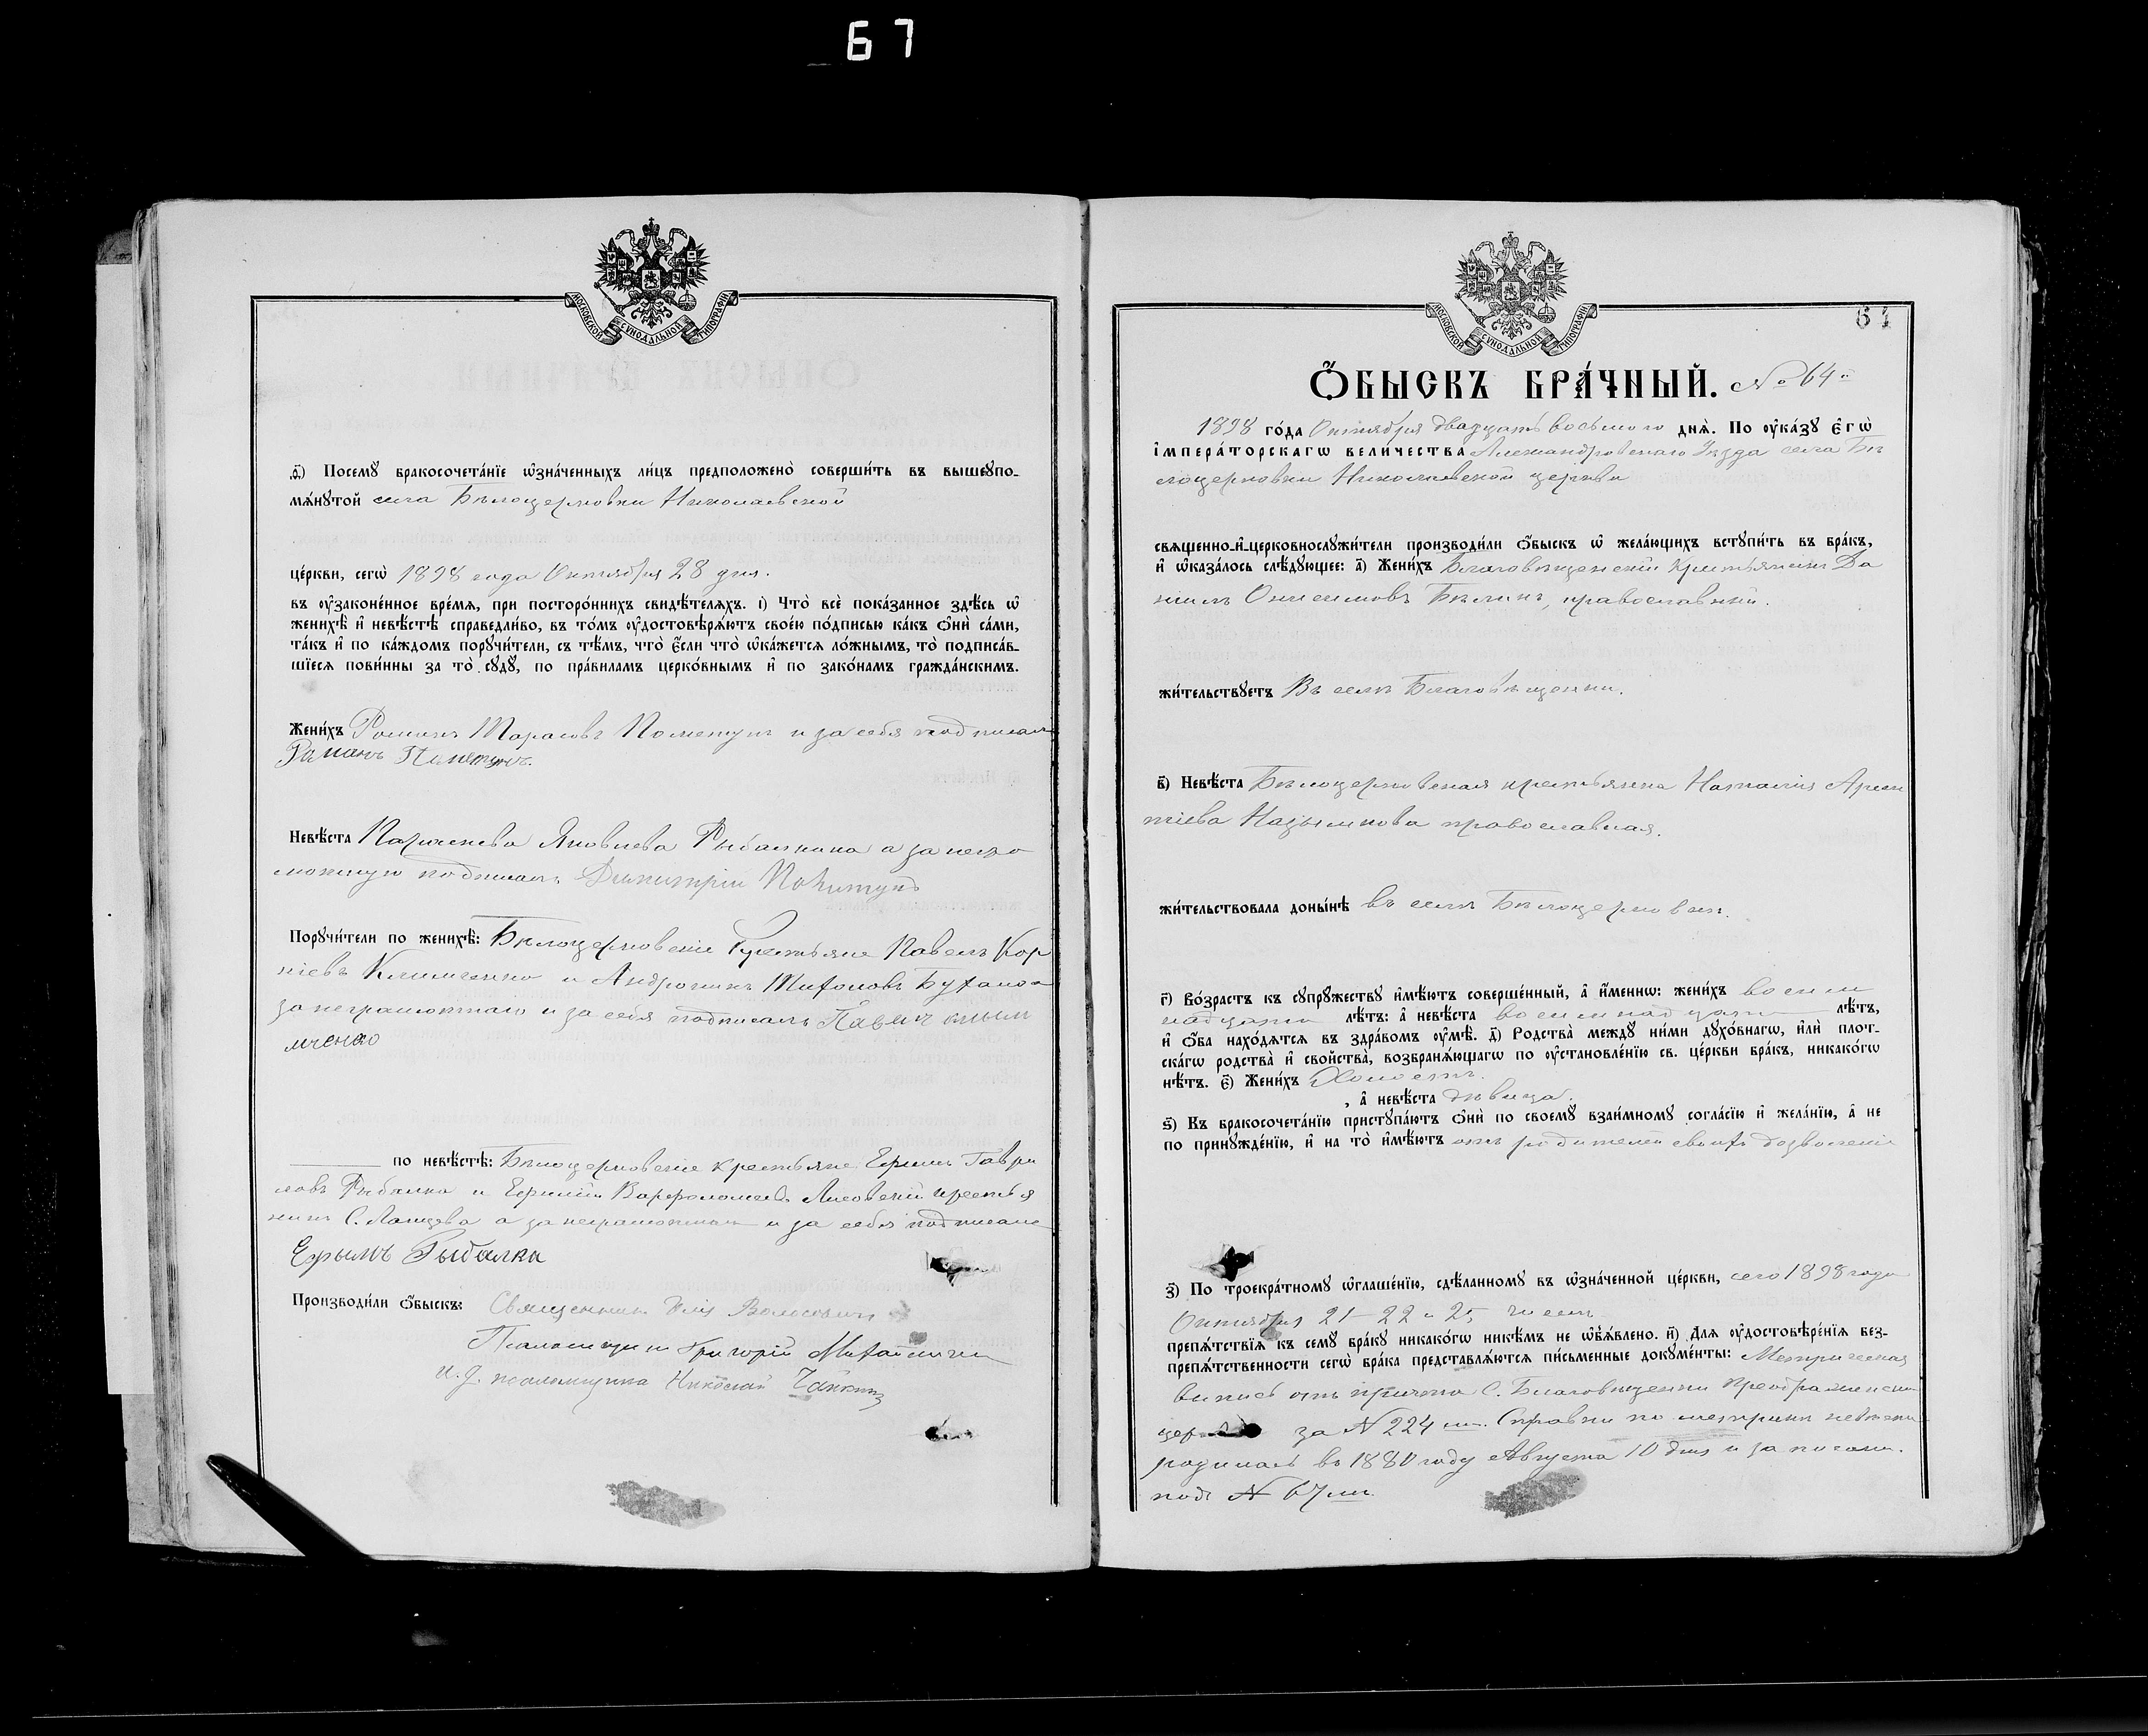 67
МОСКОВСКОЙ СѴНОДАЛЬНОЙ ТИПОГРАФІИ
ѳ҃) Посемꙋ бракосочета́нїе ѡ҆зна́ченныхъ ли́цъ предположено̀ соверши́ть въ вышеꙋпо-
мѧ́нꙋтой села Бѣлоцерковки Николаевской
це́ркви, сегѡ̀ 1898 года Октября 28 дня.
въ ᲂу҆законе́нное вре́мѧ, при посторо́ннихъ свидѣ́телѧхъ. і҃) Что̀ всѐ пока́занное здѣ́сь ѡ҆
женихѣ̀ и҆ невѣ́стѣ справедли́во, въ то́мъ ᲂу҆достовѣрѧ́ютъ свое́ю по́дписью ка́къ ѻ҆нѝ са́ми,
та́къ и҆ по ка́ждомъ порꙋчи́тели, съ тѣ́мъ, что̀ є҆́сли что̀ ѡ҆ка́жетсѧ ло́жнымъ, то̀ подписа́в-
шїесѧ пови́нны за то̀ сꙋдꙋ̀, по пра́виламъ церко́внымъ и҆ по зако́намъ гражда́нскимъ.
Жени́хъ Романъ Тарасовъ Пометунъ и за себя подписалъ
Романъ Пометунъ.
Невѣ́ста Параскева Яковлева Рыбалкина а за негра
мотную подписалъ Димитрій Пометунъ
Порꙋчи́тели по женихѣ̀: Бѣлоцерковскіе Крестьяне Павелъ Кор
ніевъ Климченко и Андроникъ Тихоновъ
за неграмотнаго и за себя подписалъ Павелъ клым
мченко
по невѣ́стѣ: Бѣлоцерковскіе крестьяне Ефимъ Гаври
ловъ Рыбалка и Варфоломеевъ Лисовскій крестья
нинъ С. а за неграмотнаго и за себя подписалъ
Ефымъ Рыбалка
Производи́ли ѻ҆́быскъ: Священникъ Илія
Псаломщикъ Григорій
И. д. псаломщика Николай
МОСКОВСКОЙ СѴНОДАЛЬНОЙ ТИПОГРАФІИ
64
Ѻ҆́БЫСКЪ БРА́ЧНЫЙ. № 64й
1898 го́да Октября двадцать восьмого днѧ̀. По ᲂу҆ка́зꙋ є҆гѡ̀
і҆мпера́торскагѡ вели́чества Александровскаго Уѣзда села Бѣ
лоцерковки Николаевской церкви
свѧще́нно-и҆-церковнослꙋжи́тели производи́ли ѻ҆́быскъ ѡ҆ жела́ющихъ встꙋпи́ть въ бра́къ,
и҆ ѡ҆каза́лось слѣ́дꙋющее: а҃) Жени́хъ Благовѣщенскій крестьянинъ Да
ніилъ Онисимовъ Бѣликъ, православный.
жи́тельствꙋетъ Въ селѣ Благовѣщенки.
в҃) Невѣ́ста Бѣлоцерковская крестьянка Наталія Арсен
тіева православная.
жи́тельствовала доны́нѣ въ селѣ Бѣлоцерковки.
г҃) Во́зрастъ къ сꙋпрꙋ́жествꙋ и҆мѣ́ютъ соверше́нный, а҆ и҆́менно: жени́хъ восем
надцати лѣ́тъ: а҆ невѣ́ста восемнадцати лѣ́тъ,
и҆ ѻ҆́ба нахо́дѧтсѧ въ здра́вомъ ᲂу҆мѣ̀. д҃) Родства̀ междꙋ̀ ни́ми дꙋхо́внагѡ, и҆лѝ плот-
ска́гѡ родства̀ и҆ сво́йства, возбранѧ́ющагѡ по ᲂу҆становле́нїю св. це́ркви бра́къ, никако́гѡ
нѣ́тъ. є҃) Жени́хъ Холостъ.
, а҆ невѣ́ста дѣвица.
ѕ҃) Къ бракосочета́нїю пристꙋпа́ютъ ѻ҆нѝ по своемꙋ̀ взаи́мномꙋ согла́сїю и҆ жела́нїю, а҆ не
по принꙋжде́нїю, и҆ на то̀ и҆мѣ́ютъ отъ родителей своихъ дозволеніе
з҃) По троекра́тномꙋ ѡ҆глаше́нїю, сдѣ́ланномꙋ въ ѡ҆зна́ченной це́ркви, сего 1898 года
Октября 21 22 и 25 чиселъ
препѧ́тствїѧ къ семꙋ̀ бра́кꙋ никако́гѡ никѣ́мъ не ѡ҆б̾ѧ́влено. и҃) Длѧ ᲂу҆достовѣре́нїѧ без-
препѧ́тственности сегѡ̀ бра́ка представлѧ́ютсѧ пи́сьменные докꙋме́нты: Метрическая
выпись отъ причта С. Благовѣщенки Преображенской
цер за № 224 мъ. Справки по метрикѣ невѣста
родилась въ 1880 году Августа 10 дня и записана.
подъ № 67 мъ